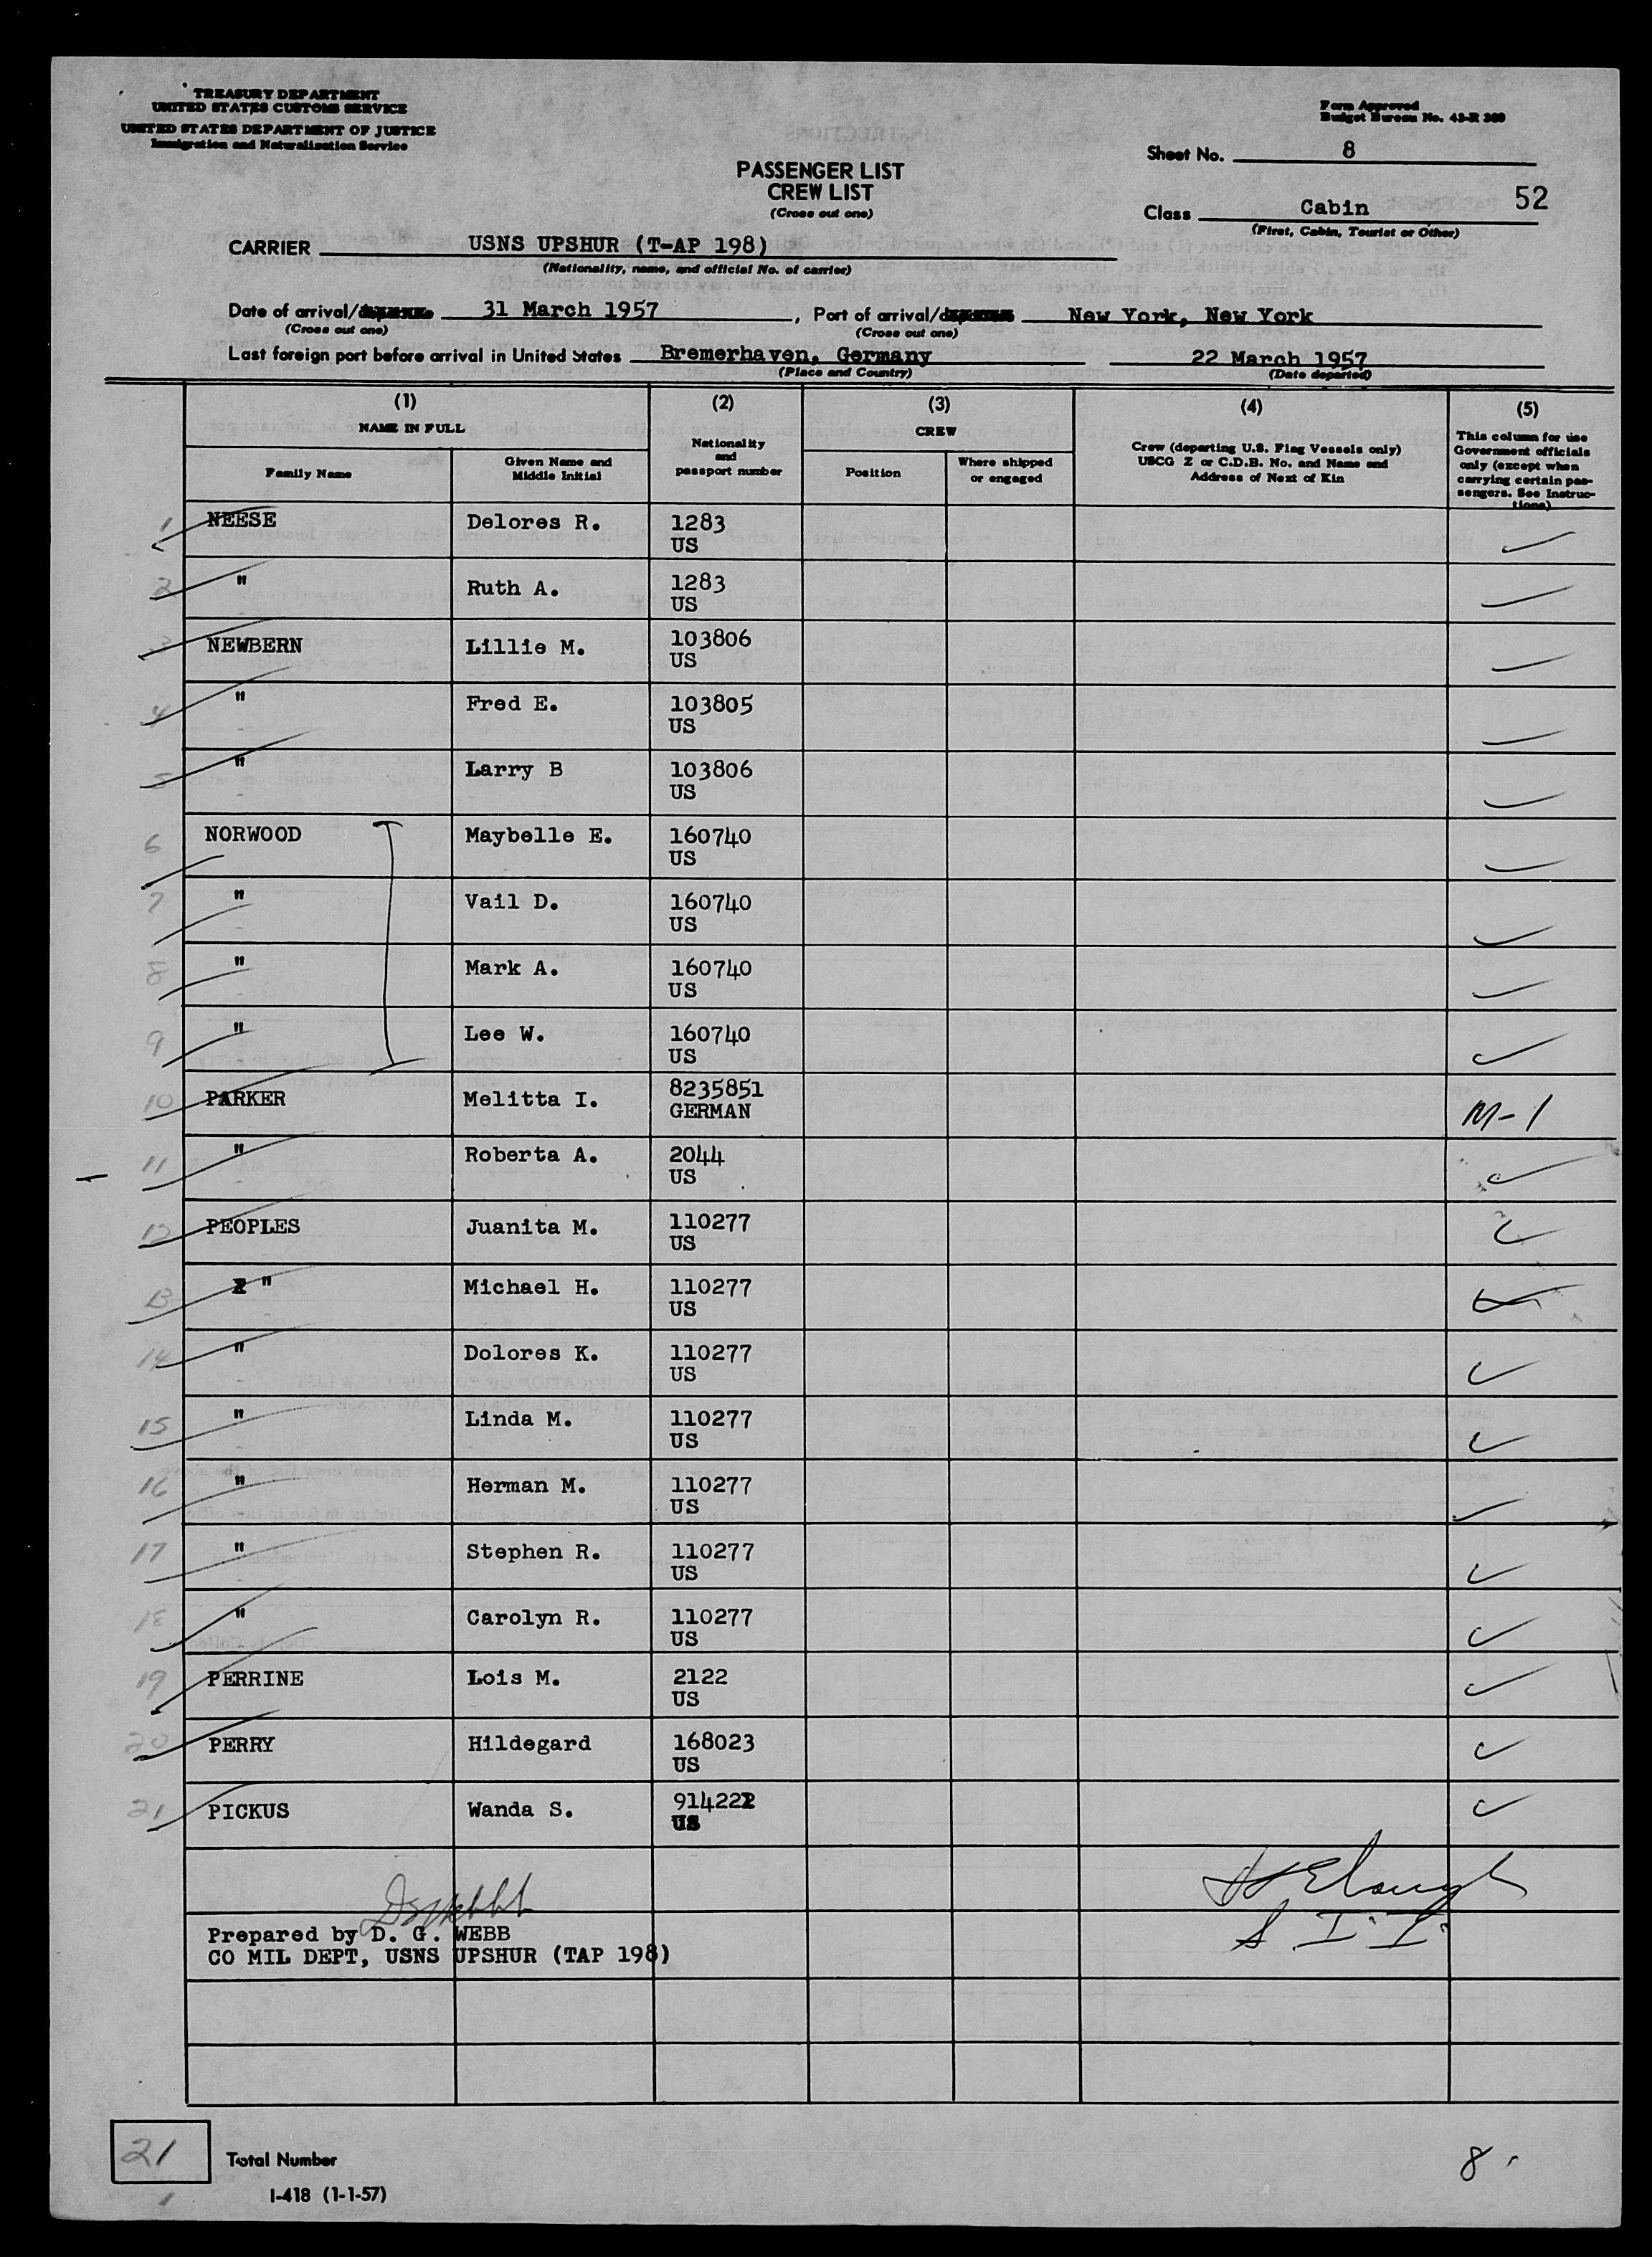 TREASURY DEPARTMENT
UNITED STATES CUSTOMS SERVICE
UNITED STATES DEPARTMENT OF JUSTICE
Immigration and Naturalization Service
Form Approved
Budget Bureau No. 43-R 309
Sheet No. 8
PASSENGER LIST
CREW LIST
(Cross out one)
Class Cabin 52
(First, Cabin, Tourist or Other)
CARRIER USNS UPSHUR (T-AP 198)
(Nationality, name, and official No. of carrier)
Date of arrival/ 31 March 1957, Port of arrival/ New York, New York
(Cross out one) (Cross out one)
Last foreign port before arrival in United States Bremerhaven, Germany 22 March 1957
(Place and Country) (Date departed)
(1) (2) (3) (4) (5)
NAME IN FULL Nationality and passport number CREW Crew (departing U.S. Flag Vessels only) USCG Z or C.D.B. No. and Name and Address of Next of Kin This column for use Government officials only (except when carrying certain passengers. See Instructions)
Family Name Given Name and Middle Initial Position Where shipped or engaged
1 NEESE Delores R. 1283
US
2 " Ruth A. 1283
US
3 NEWBERN Lillie M. 103806
US
4 " Fred E. 103805
US
5 " Larry B 103806
US
6 NORWOOD Maybelle E. 160740
US
7 " Vail D. 160740
US
8 " Mark A. 160740
US
9 " Lee W. 160740
US
10 PARKER Melitta I. 8235851
GERMAN M-1
11 " Roberta A. 2044
US
12 PEOPLES Juanita M. 110277
US
13 " Michael H. 110277
US
14 " Dolores K. 110277
US
15 " Linda M. 110277
US
16 " Herman M. 110277
US
17 " Stephen R. 110277
US
18 " Carolyn R. 110277
US
19 PERRINE Lois M. 2122
US
20 PERRY Hildegard 168023
US
21 PICKUS Wanda S. 914222
US
S.I.I.
Prepared by D. G. WEBB
CO MIL DEPT, USNS UPSHUR (TAP 198)
21 Total Number
I-418 (1-1-57)
8